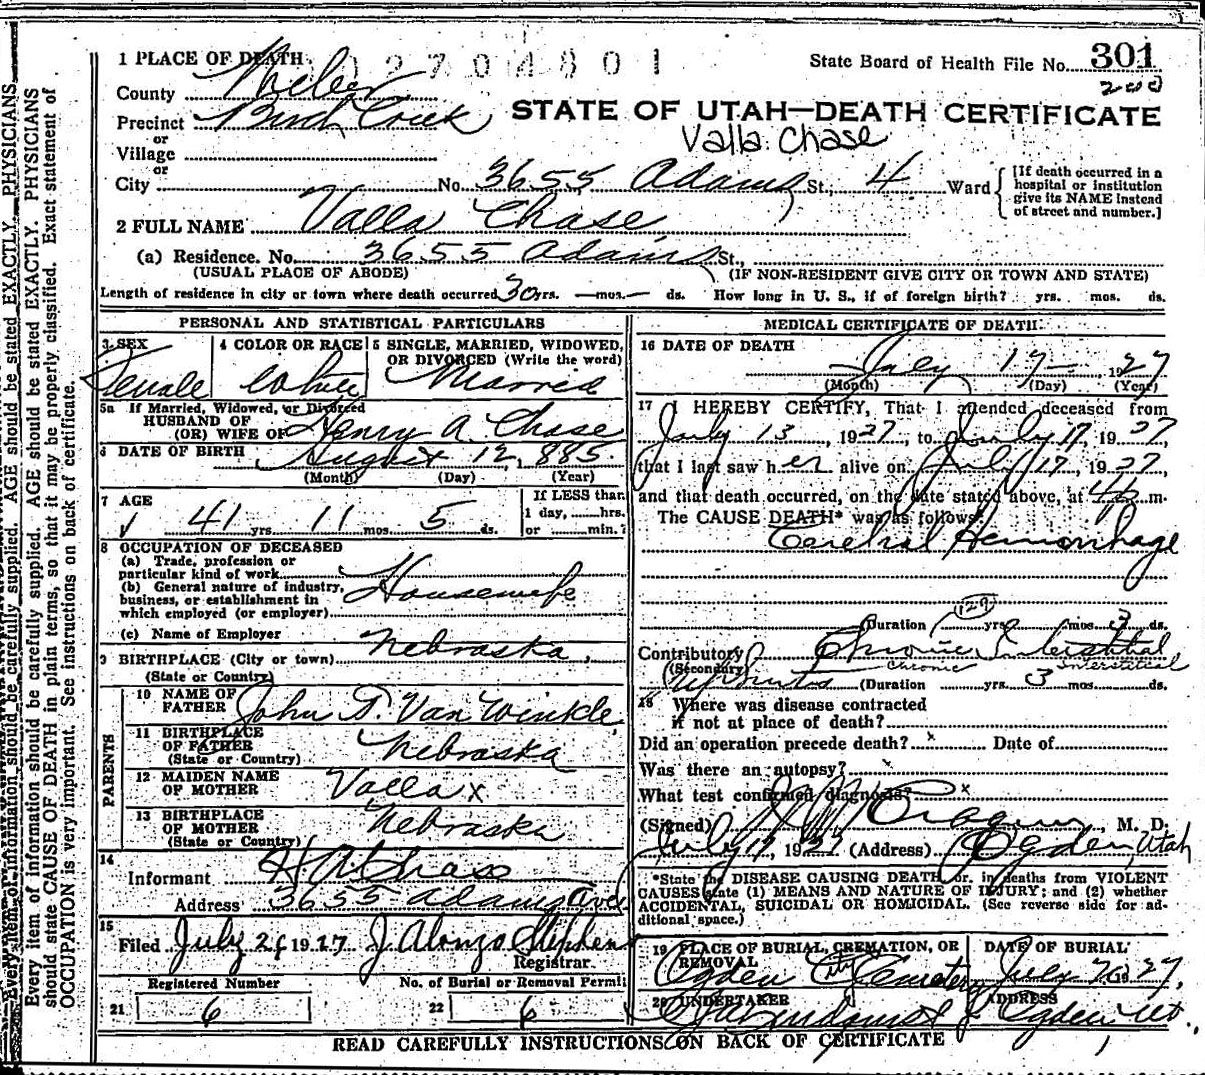 1 PLACE OF DEATH 2704801 State Board of Health File No. 301
County Weber 200
STATE OF UTAH—DEATH CERTIFICATE
Precinct Burch Creek Valla Chase
or
Village
or
City No. 3655 Adams St., 4 Ward [If death occurred in a hospital or institution give its NAME instead of street and number.]
2 FULL NAME Valla Chase
(a) Residence. No. 3655 Adams St.,
(USUAL PLACE OF ABODE) (IF NON-RESIDENT GIVE CITY OR TOWN AND STATE)
Length of residence in city or town where death occurred 30 yrs. — mos. — ds. How long in U. S., if of foreign birth? yrs. mos. ds.
PERSONAL AND STATISTICAL PARTICULARS
3 SEX 4 COLOR OR RACE 5 SINGLE, MARRIED, WIDOWED,
OR DIVORCED (Write the word)
Female White Married
5a If Married, Widowed, or Divorced
HUSBAND OF
(OR) WIFE OF Henry A. Chase
6 DATE OF BIRTH August 12, 1885.
(Month) (Day) (Year)
7 AGE If LESS than
1 day, hrs.
41 yrs. 11 mos. 5 ds. or min.?
8 OCCUPATION OF DECEASED
(a) Trade, profession or
particular kind of work
(b) General nature of industry, Housewife
business, or establishment in
which employed (or employer)
(c) Name of Employer
9 BIRTHPLACE (City or town) Nebraska,
(State or Country)
PARENTS
10 NAME OF
FATHER John D. Van Winkle,
11 BIRTHPLACE
OF FATHER Nebraska
(State or Country)
12 MAIDEN NAME
OF MOTHER Valla x
13 BIRTHPLACE
OF MOTHER Nebraska
(State or Country)
14
Informant H A Chase
Address 3655 Adams Ave
15
Filed July 21 1927 J. Alonzo Stephens
Registrar.
Registered Number No. of Burial or Removal Permit
21 6 22 6
MEDICAL CERTIFICATE OF DEATH
16 DATE OF DEATH
July 17— 1927
(Month) (Day) (Year)
17 I HEREBY CERTIFY, That I attended deceased from
July 13, 1927, to July 17, 1927
that I last saw her alive on July 17, 1927,
and that death occurred, on the date stated above, at m.
The CAUSE DEATH* was as follows:
Cerebral Hemorrhage
129
(Duration yrs. mos. 3 ds.
Contributory Chronic Interstitial
(Secondary) chronic Interstitial
Nephritis (Duration yrs. 3 mos. ds.
18 Where was disease contracted
if not at place of death?
Did an operation precede death? x Date of
Was there an autopsy? x
What test confirmed diagnosis? x
(Signed) M. D.
July 17, 1927 (Address) Ogden, Utah
*State the DISEASE CAUSING DEATH, or, in deaths from VIOLENT
CAUSES state (1) MEANS AND NATURE OF INJURY; and (2) whether
ACCIDENTAL, SUICIDAL OR HOMICIDAL. (See reverse side for ad-
ditional space.)
19 PLACE OF BURIAL, CREMATION, OR REMOVAL DATE OF BURIAL
Ogden City Cemetery July 1927,
20 UNDERTAKER ADDRESS
Ogden Ut.,
READ CAREFULLY INSTRUCTIONS ON BACK OF CERTIFICATE
Every item of information should be carefully supplied. AGE should be stated EXACTLY. PHYSICIANS
Every item of information should be carefully supplied. AGE should be stated EXACTLY. PHYSICIANS
should state CAUSE OF DEATH in plain terms, so that it may be properly classified. Exact statement of
OCCUPATION is very important. See instructions on back of certificate.